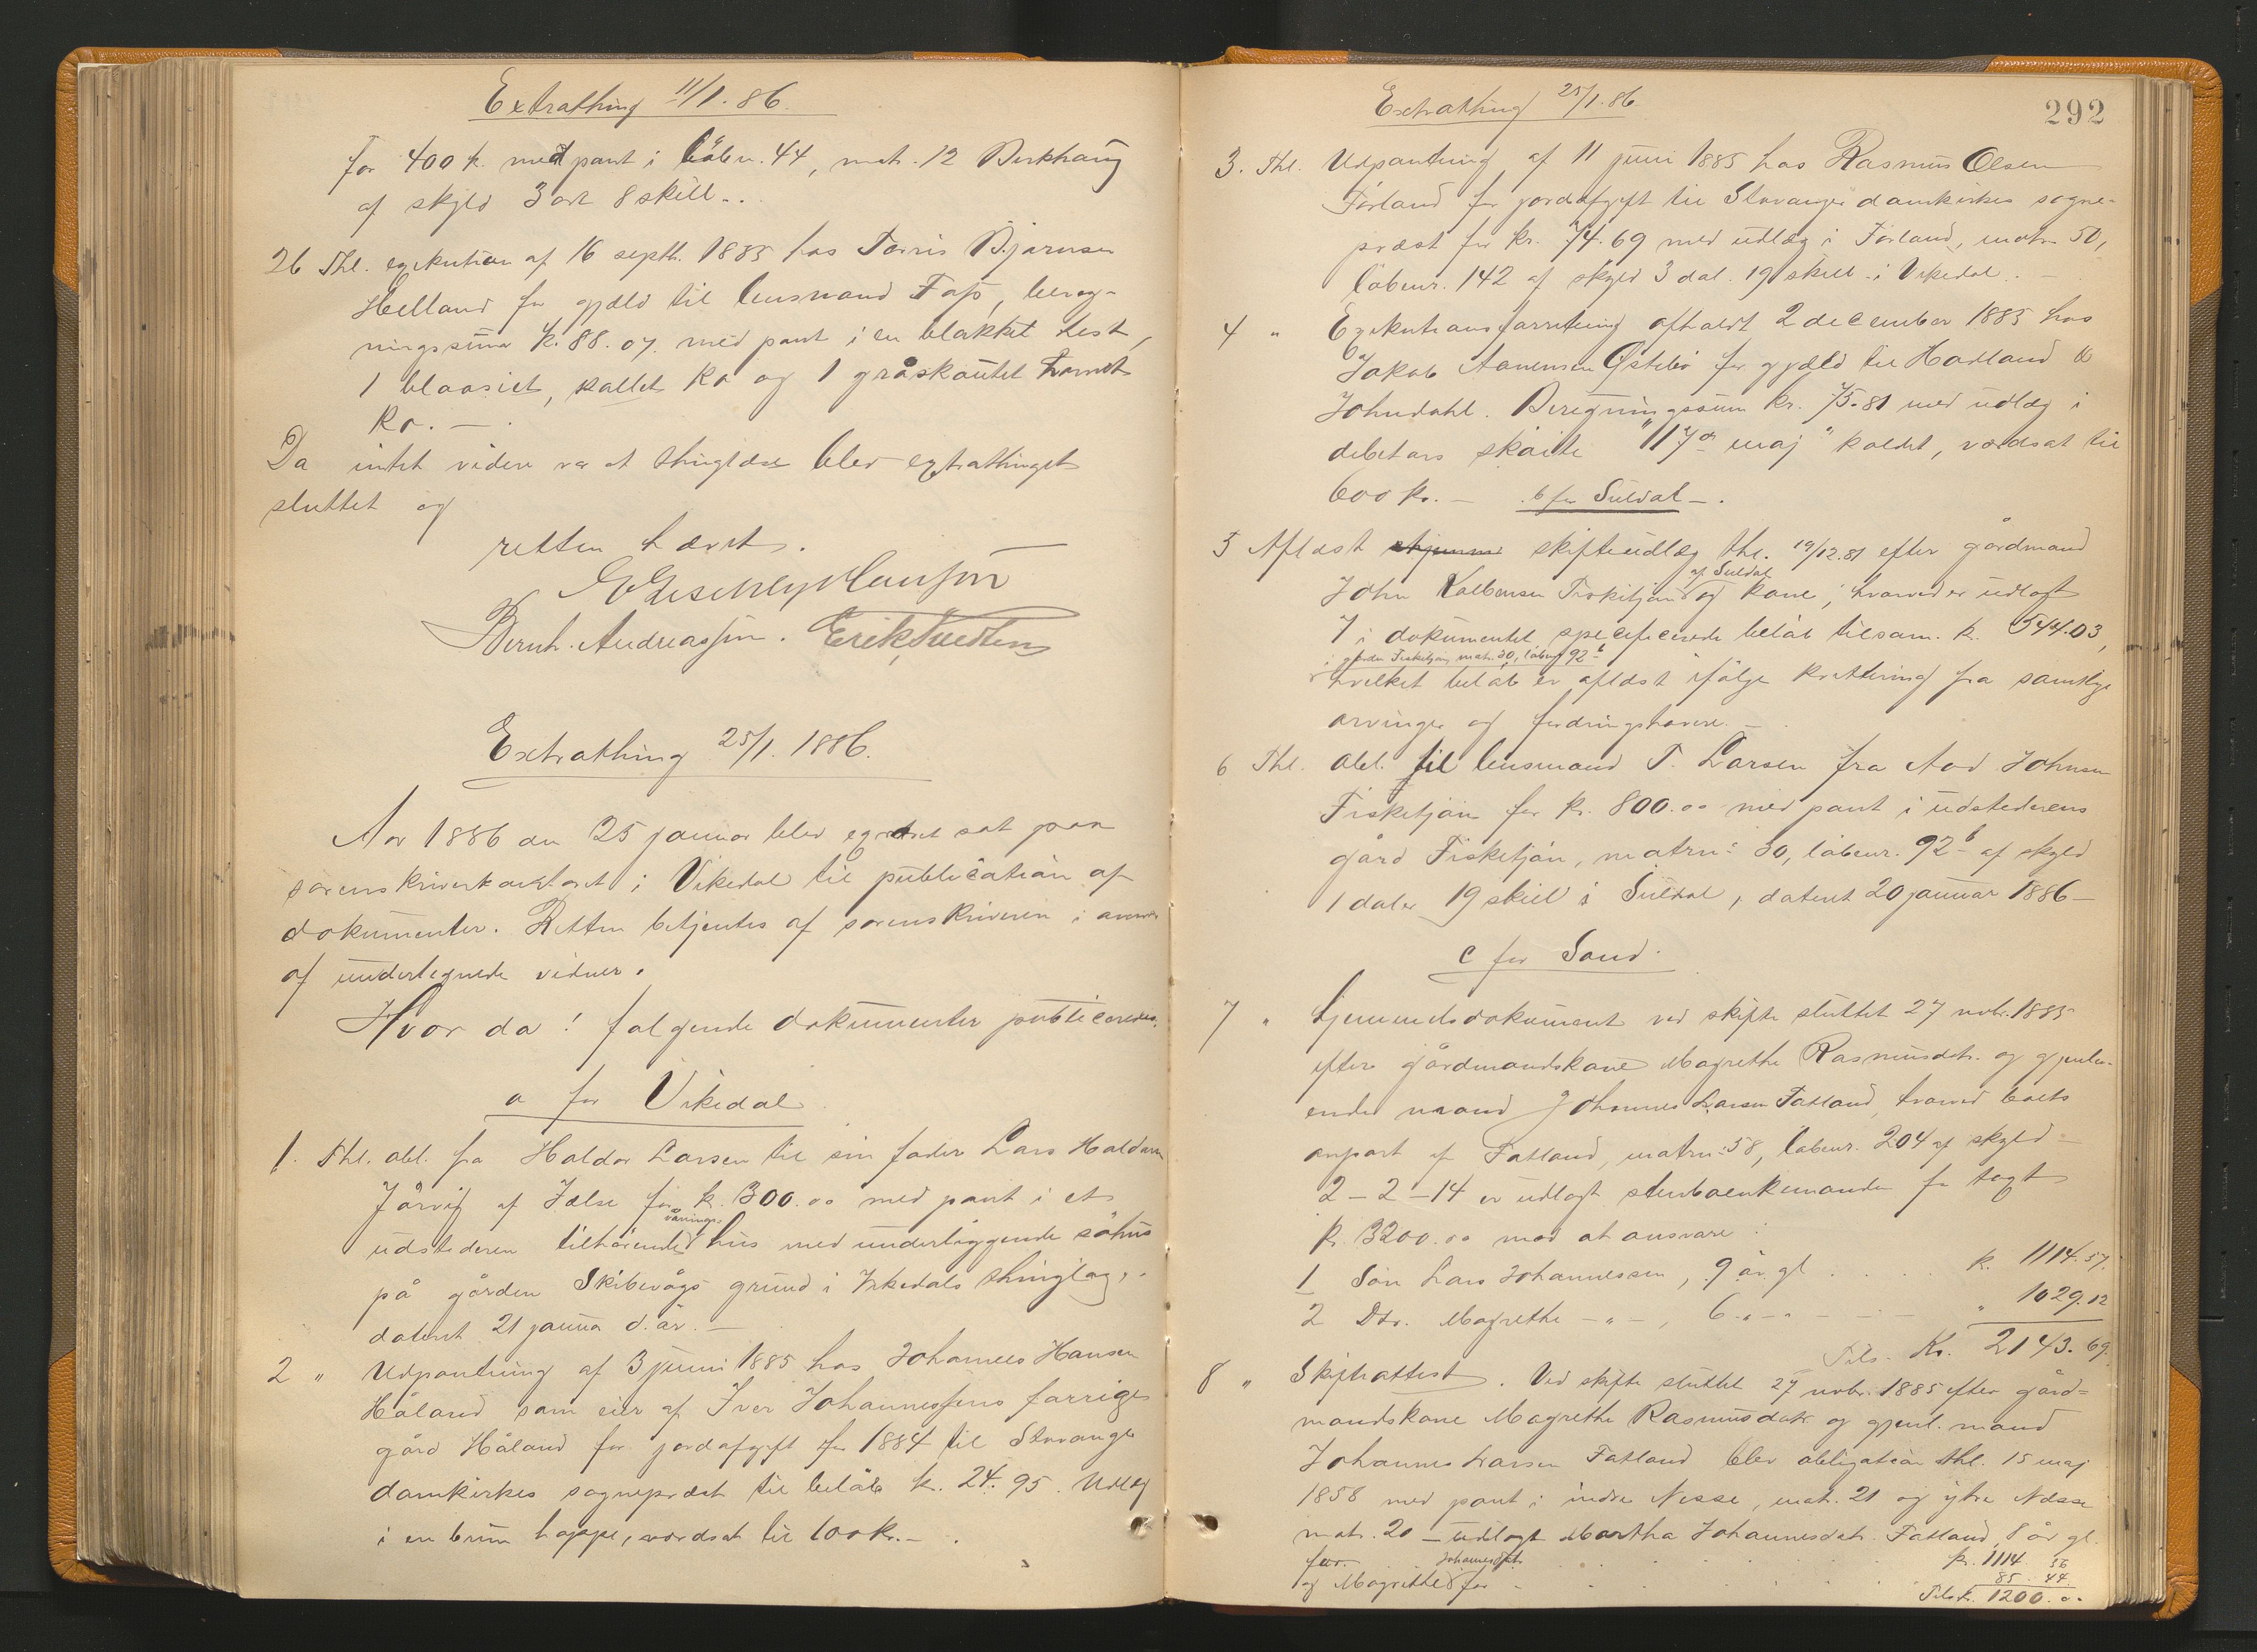 Extrathing 11/1. 86.
for 400 k. med pant i löbn. 44, matr. 12 Birkhaug
af skyld 3 ort 8 skill..
26 Thl. exekution af 16 septb. 1885 hos Torris Bjørnsen
Helland for gjæld til lensmand Fast, bereg-
ningssum k. 88.07 med pant i en blakket hest,
1 blaasiet, kollet ko og 1 gråskautet hornet
ko. —
Da intet videre var at thinglæse blev extrathinget
sluttet og
retten hævet.
Bernh. Andreassen. Erik Tuedten
Extrathing 25/1. 1886.
Aar 1886 den 25 januar blev extraret sat paa
sorenskriverkontoret i Vikedal til publication af
dokumenter. Retten betjentes af sorenskriveren i nærvær
af undertegnede vidner.
Hvor da! følgende dokumenter publiceredes.
a for Vikedal
1. Thl. obl. fra Haldor Larsen til sin fader Lars Haldorsen
Jårvig af Jelse for k. 300.00 med pant i et
vånings-
udstederen tilhörende hus med underliggende söhus
på gården Skibevågs grund i Vikedals thinglag,.
dateret 21 januar d. år. —
2 " Udpantning af 3 juni 1885 hos Johannes Hansen
Håland som eier af Iver Johannessens forrige
gård Håland for jordafgift for 1884 til Stavanger
domkirkes sogneprest til belöb k. 24.95. Udlæg
i en brun hoppe, værdsat til 100 kr. —.
Extrathing 25/1. 86.
292
3. Thl. Udpantning af 11 juni 1885 hos Rasmus Olsen
Förland for jordafgift til Stavanger domkirkes sogne-
præst for kr. 74.69 med udlæg i Förland, matr. 50,
löbenr. 142 af skyld 3 dal. 19 skill. i Vikedal. —
4 " Exekutionsforretning afholdt 2 december 1885 hos
Jakob Aanensen Østebö for gjæld til Hadland &
Johndahl. Beregningssum kr. 75.81 med udlæg i
debitors skøite "17de maj" kaldet, værdsat til
600 kr. — b for Suldal —.
5 Aflæst skifteudlæg thl. 19/12.81 efter gårdmand
af Suldal
John Kolbensen Fisketjön og kone, hvorved er udlagt
7 i dokumentet specificerede belöb tilsam. k. 544.03,
i gården Fisketjön, matr. 30, löbenr 92b
hvilket belöb er aflæst ifölge kvittering fra samtlige
arvinger og fordringshavere. —
6 Thl. obl. til lensmand T. Larsen fra Aad Johnsen
Fisketjön for k. 800.00 med pant i udstederens
gård Fisketjön, matrnr 30, löbenr. 92b af skyld
1 daler 19 skill i Suldal, dateret 20 januar 1886 —
c for Sand.
7 " Hjemmelsdokument ved skifte sluttet 27 novbr. 1885
efter gårdmandskone Magrethe Rasmusdatr. og gjenlev-
ende mand Johannes Larsen Fatland, hvorved boets
anpart af Fatland, matrnr 58, löbenr. 204 af skyld
2 – 2 – 14 er udlagt sterboenkemanden for taxt
k. 3200.00 mod at ansvare:
1 Sön Lars Johannessen, 9 år gl . . . . k. 1114.57.
2 Dtr. Magrethe – " – , 6 – " – – – " 1029.12
Tils. Kr. 2143.69.
8 " Skifteattest. Ved skifte sluttet 27 novbr. 1885 efter gård-
mandskone Magrethe Rasmusdatr og gjenl. mand
Johannes Larsen Fatland blev obligation thl. 15 maj
1858 med pant i indre Nesse, matr. 21 og ytre Nesse
matr. 20 — udlagt Martha Johannesdatr Fatland, 8 år gl.
for . . . . . . k. 1114.56
Johannesdatr.
og Magrethe for . . . . . 85.44.
Tils k. 1200.00